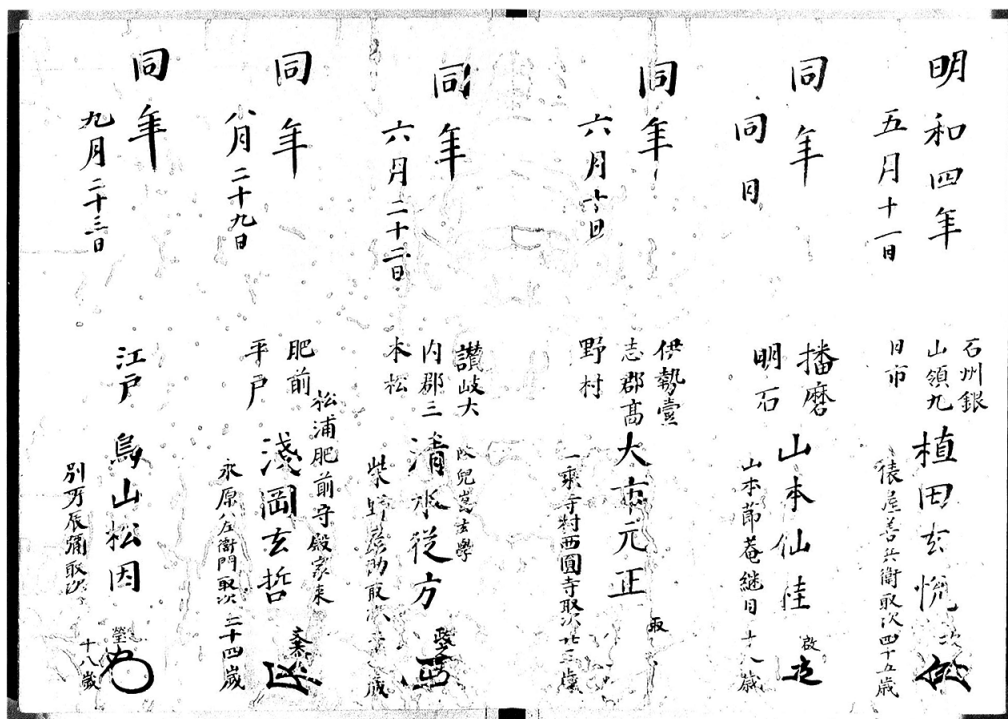 明和四年
五月十一日
石州銀
山領九
日市
植田玄悦
俵屋善兵衛取次四十五歳
同年
同日
播磨
明石
山本仙佳
山本節菴継目十八歳
同年
六月十日
伊勢壹
志郡髙
野村
大市元正
一乗寺村西圓寺取次廿三歳
同年
六月二十二日
讃岐大
内郡三
本松
清水従方
取次
歳
同年
八月二十九日
肥前
平戸
松浦肥前守殿家来
淺岡玄哲
永原八左衛門取次 二十四歳
同年
九月二十三日
江戸
鳥山松因
別所辰彌取次
十八歳